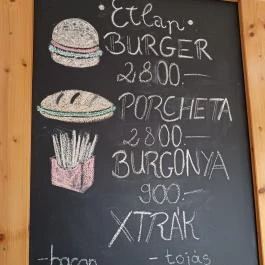 • Étlap •
BURGER
2800.-
PORCHETA
2800.-
BURGONYA
900.-
XTRÁK
-bacon
- tojás